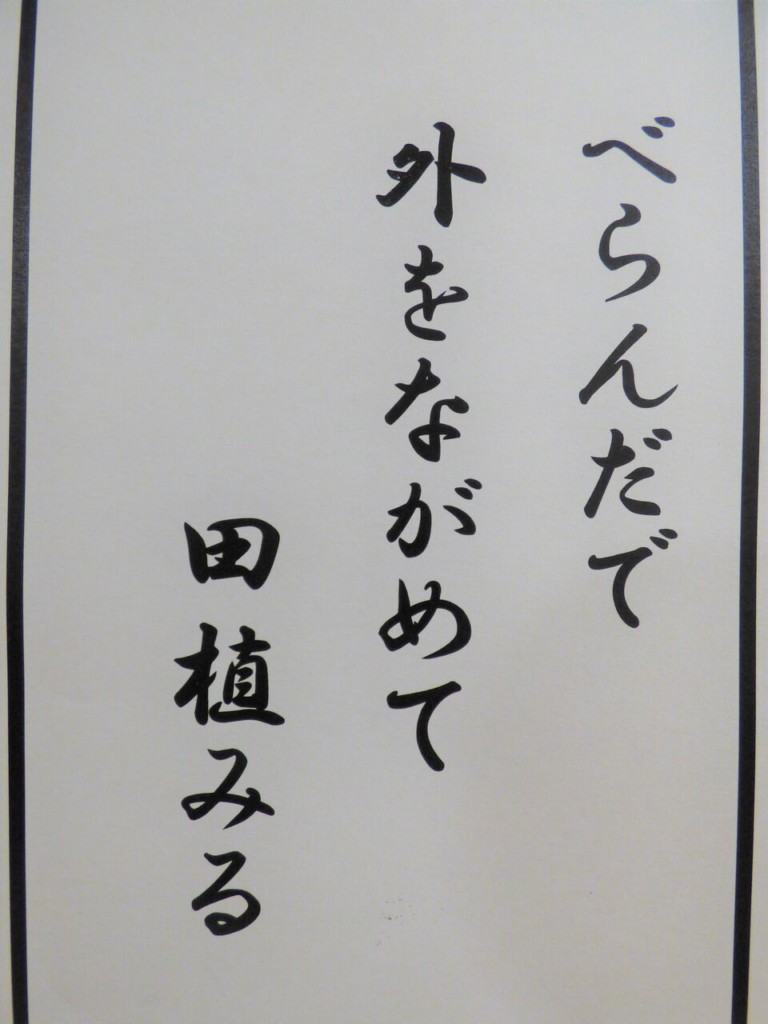 べらんだで
外をながめて
田植みる